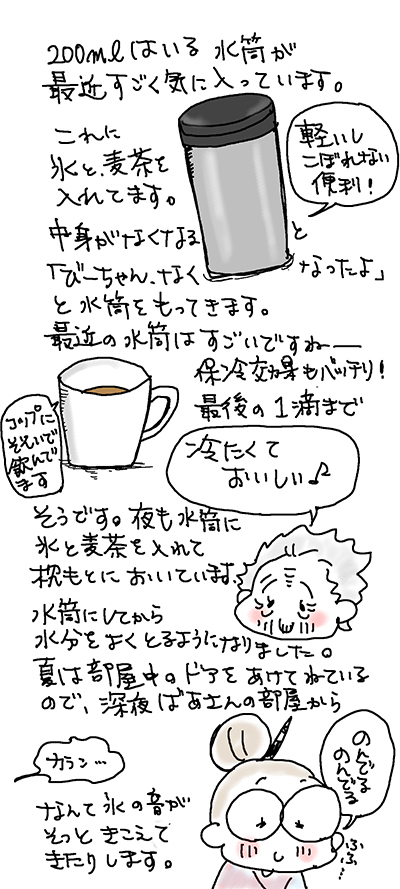 200mlはいる 水筒が
最近すごく気に入っています。
これに
氷と、麦茶を
入れてます。
軽いし
こぼれない
便利!
中身がなくなると
「びーちゃん、なくなったよ」
と水筒をもってきます。
最近の水筒はすごいですねー
保冷効果もバッチリ!
最後の1滴まで
コップに
そそいで
飲んで
ます
冷たくて
おいしい♪
そうです。夜も水筒に
氷と麦茶を入れて
枕もとにおいています。
水筒にしてから
水分をよくとるようになりました。
夏は部屋中のドアをあけてねている
ので、深夜ばあさんの部屋から
カラン…
なんて氷の音が
そっときこえて
きたりします。
のんでる
のんでる
ふふ…